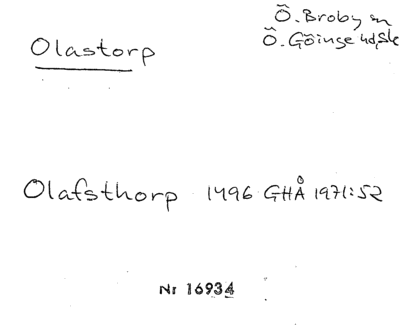 Olastorp
Ö. Broby sn
Ö. Göinge hd, Sk
Olafsthorp 1496 GHÅ 1971:52
Nr 16934